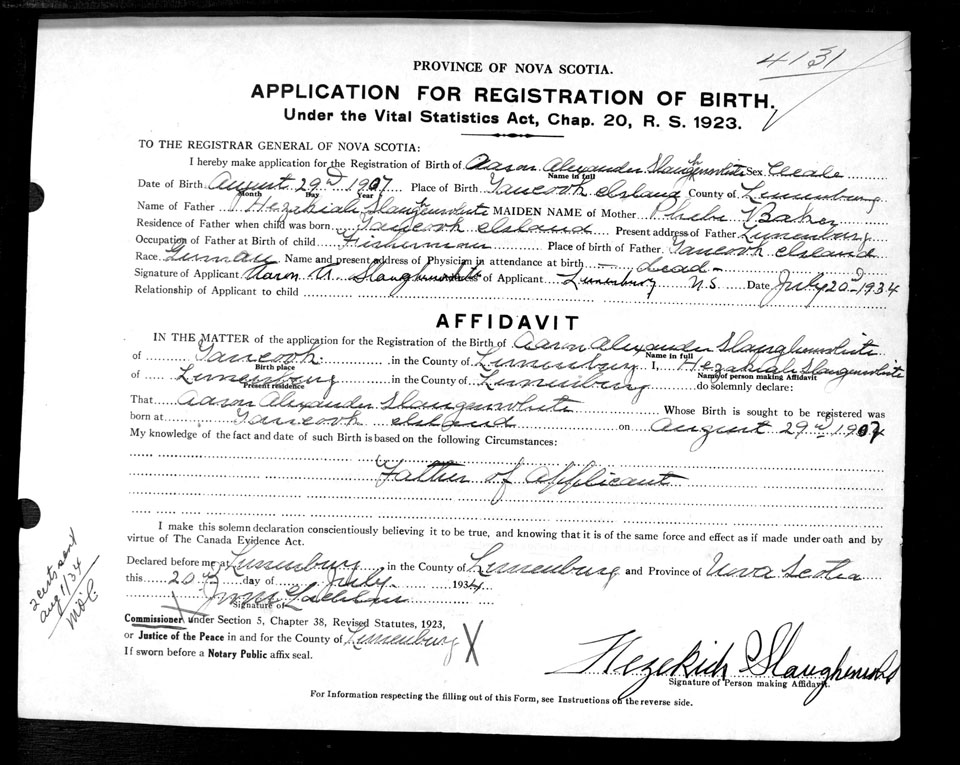 4131
PROVINCE OF NOVA SCOTIA.
APPLICATION FOR REGISTRATION OF BIRTH.
Under the Vital Statistics Act, Chap. 20, R. S. 1923.
TO THE REGISTRAR GENERAL OF NOVA SCOTIA:
I hereby make application for the Registration of Birth of Aaron Alexander Slaughenwhite Sex Male
Name in full
Date of Birth August 29d 1907 Place of Birth Tancook Island County of Lunenburg
Month Day Year
Name of Father Hezakiah Slaughenwhite MAIDEN NAME of Mother Phebe Baker
Residence of Father when child was born Tancook Island Present address of Father Lunenburg
Occupation of Father at Birth of child Fisherman Place of birth of Father Tancook Island
Race German Name and present address of Physician in attendance at birth - dead -
Signature of Applicant Aaron A. Slaughenwhite of Applicant Lunenburg N.S. Date July 20d 1934
Relationship of Applicant to child
AFFIDAVIT
IN THE MATTER of the application for the Registration of the Birth of Aaron Alexander Slaughenwhite
Name in full
of Tancook in the County of Lunenburg I, Hezakiah Slaugenwhite
Birth place Name of person making Affidavit
of Lunenburg in the County of Lunenburg do solemnly declare:
Present residence
That Aaron Alexander Slaugenwhite Whose Birth is sought to be registered was
born at Tancook Island on August 29d 1907
My knowledge of the fact and date of such Birth is based on the following Circumstances:
Father of Applicant
I make this solemn declaration conscientiously believing it to be true, and knowing that it is of the same force and effect as if made under oath and by
virtue of The Canada Evidence Act.
Declared before me at Lunenburg in the County of Lunenburg and Province of Nova Scotia
this 20d day of July 1934
Signature of
Commissioner under Section 5, Chapter 38, Revised Statutes, 1923,
or Justice of the Peace in and for the County of Lunenburg X
If sworn before a Notary Public affix seal.
Hezekiah Slaughenwhite
Signature of Person making Affidavit.
For Information respecting the filling out of this Form, see Instructions on the reverse side.
2 certs sent
Aug 1/34